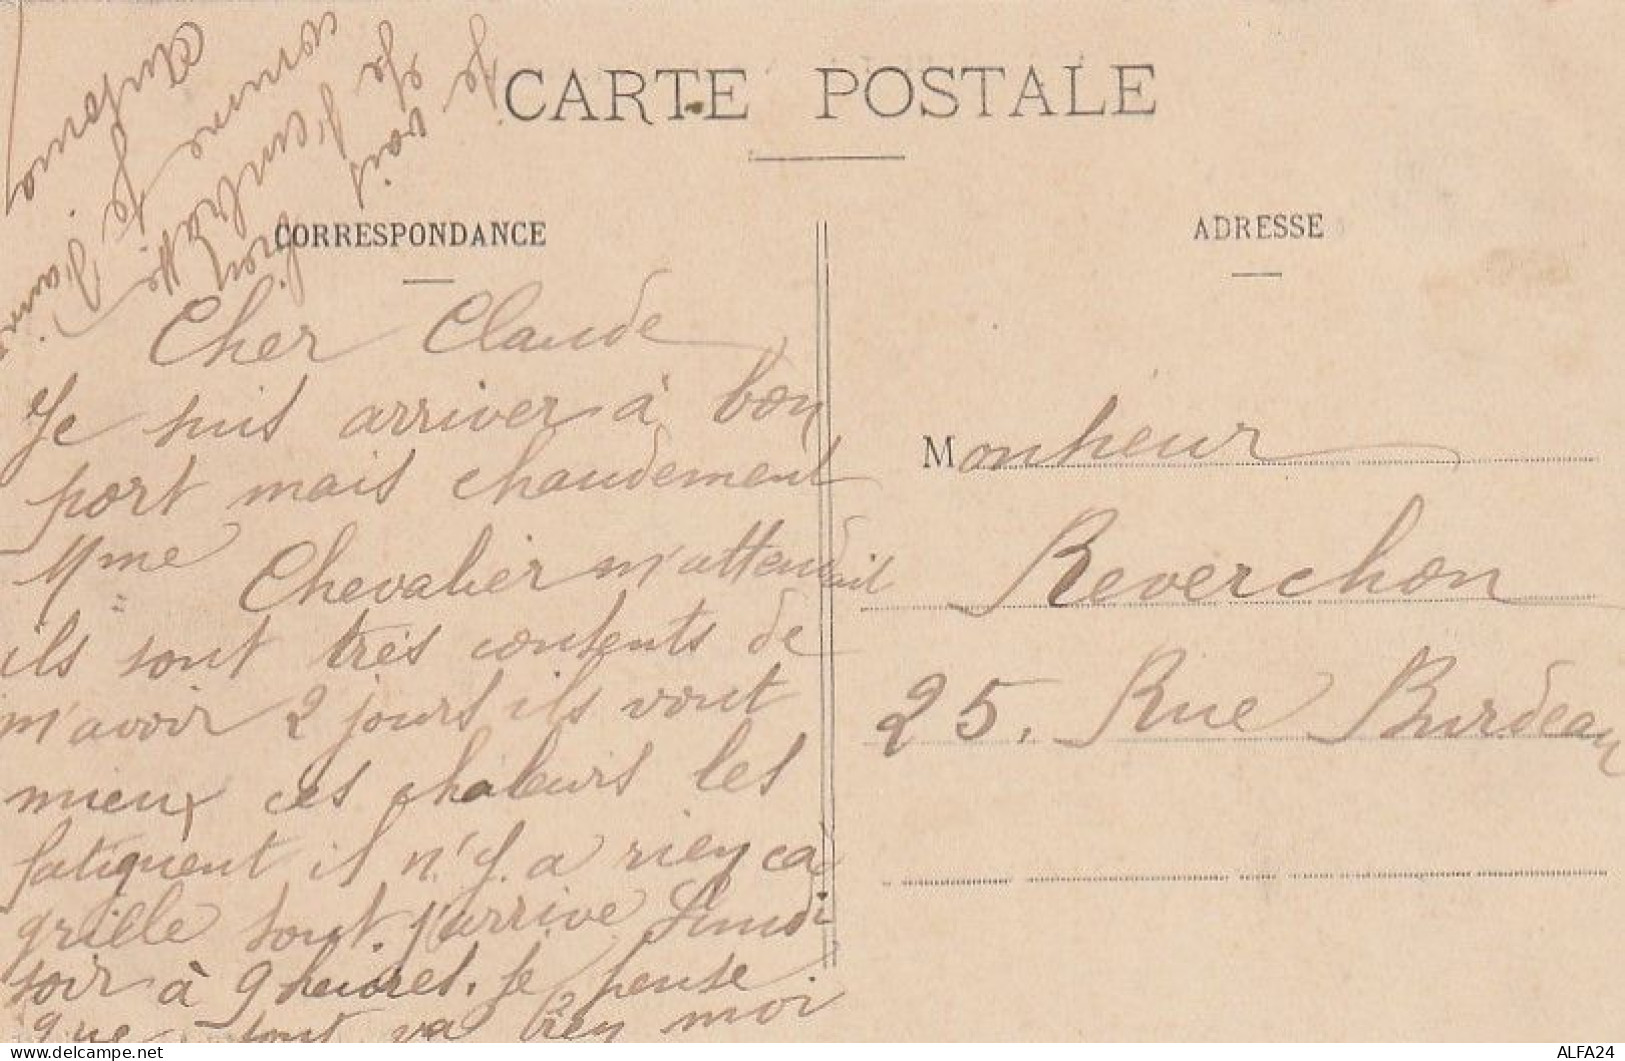 CARTE POSTALE
CORRESPONDANCE
ADRESSE
Cher Claude
Je suis arriver à bon
port mais chaudement
Mme Chevalier m'attendait
ils sont très contents de
m'avoir 2 jours ils vont
mieux ces chaleurs les
fatiguent il n'y a rien ca
grille tout. j'arrive Lundi
soir à 9 heures. Je pense
que tout va bien moi
Je
vois
Je
t'embrasse
comme je t'aime
Antonia
Monsieur
Reverchon
25. Rue Burdeau
www.delcampe.net
ALFA24